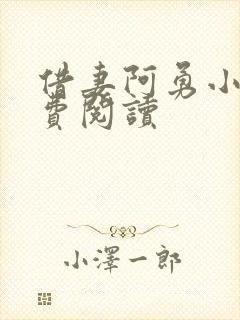 借妻阿勇小
費閱讀
小澤一郎